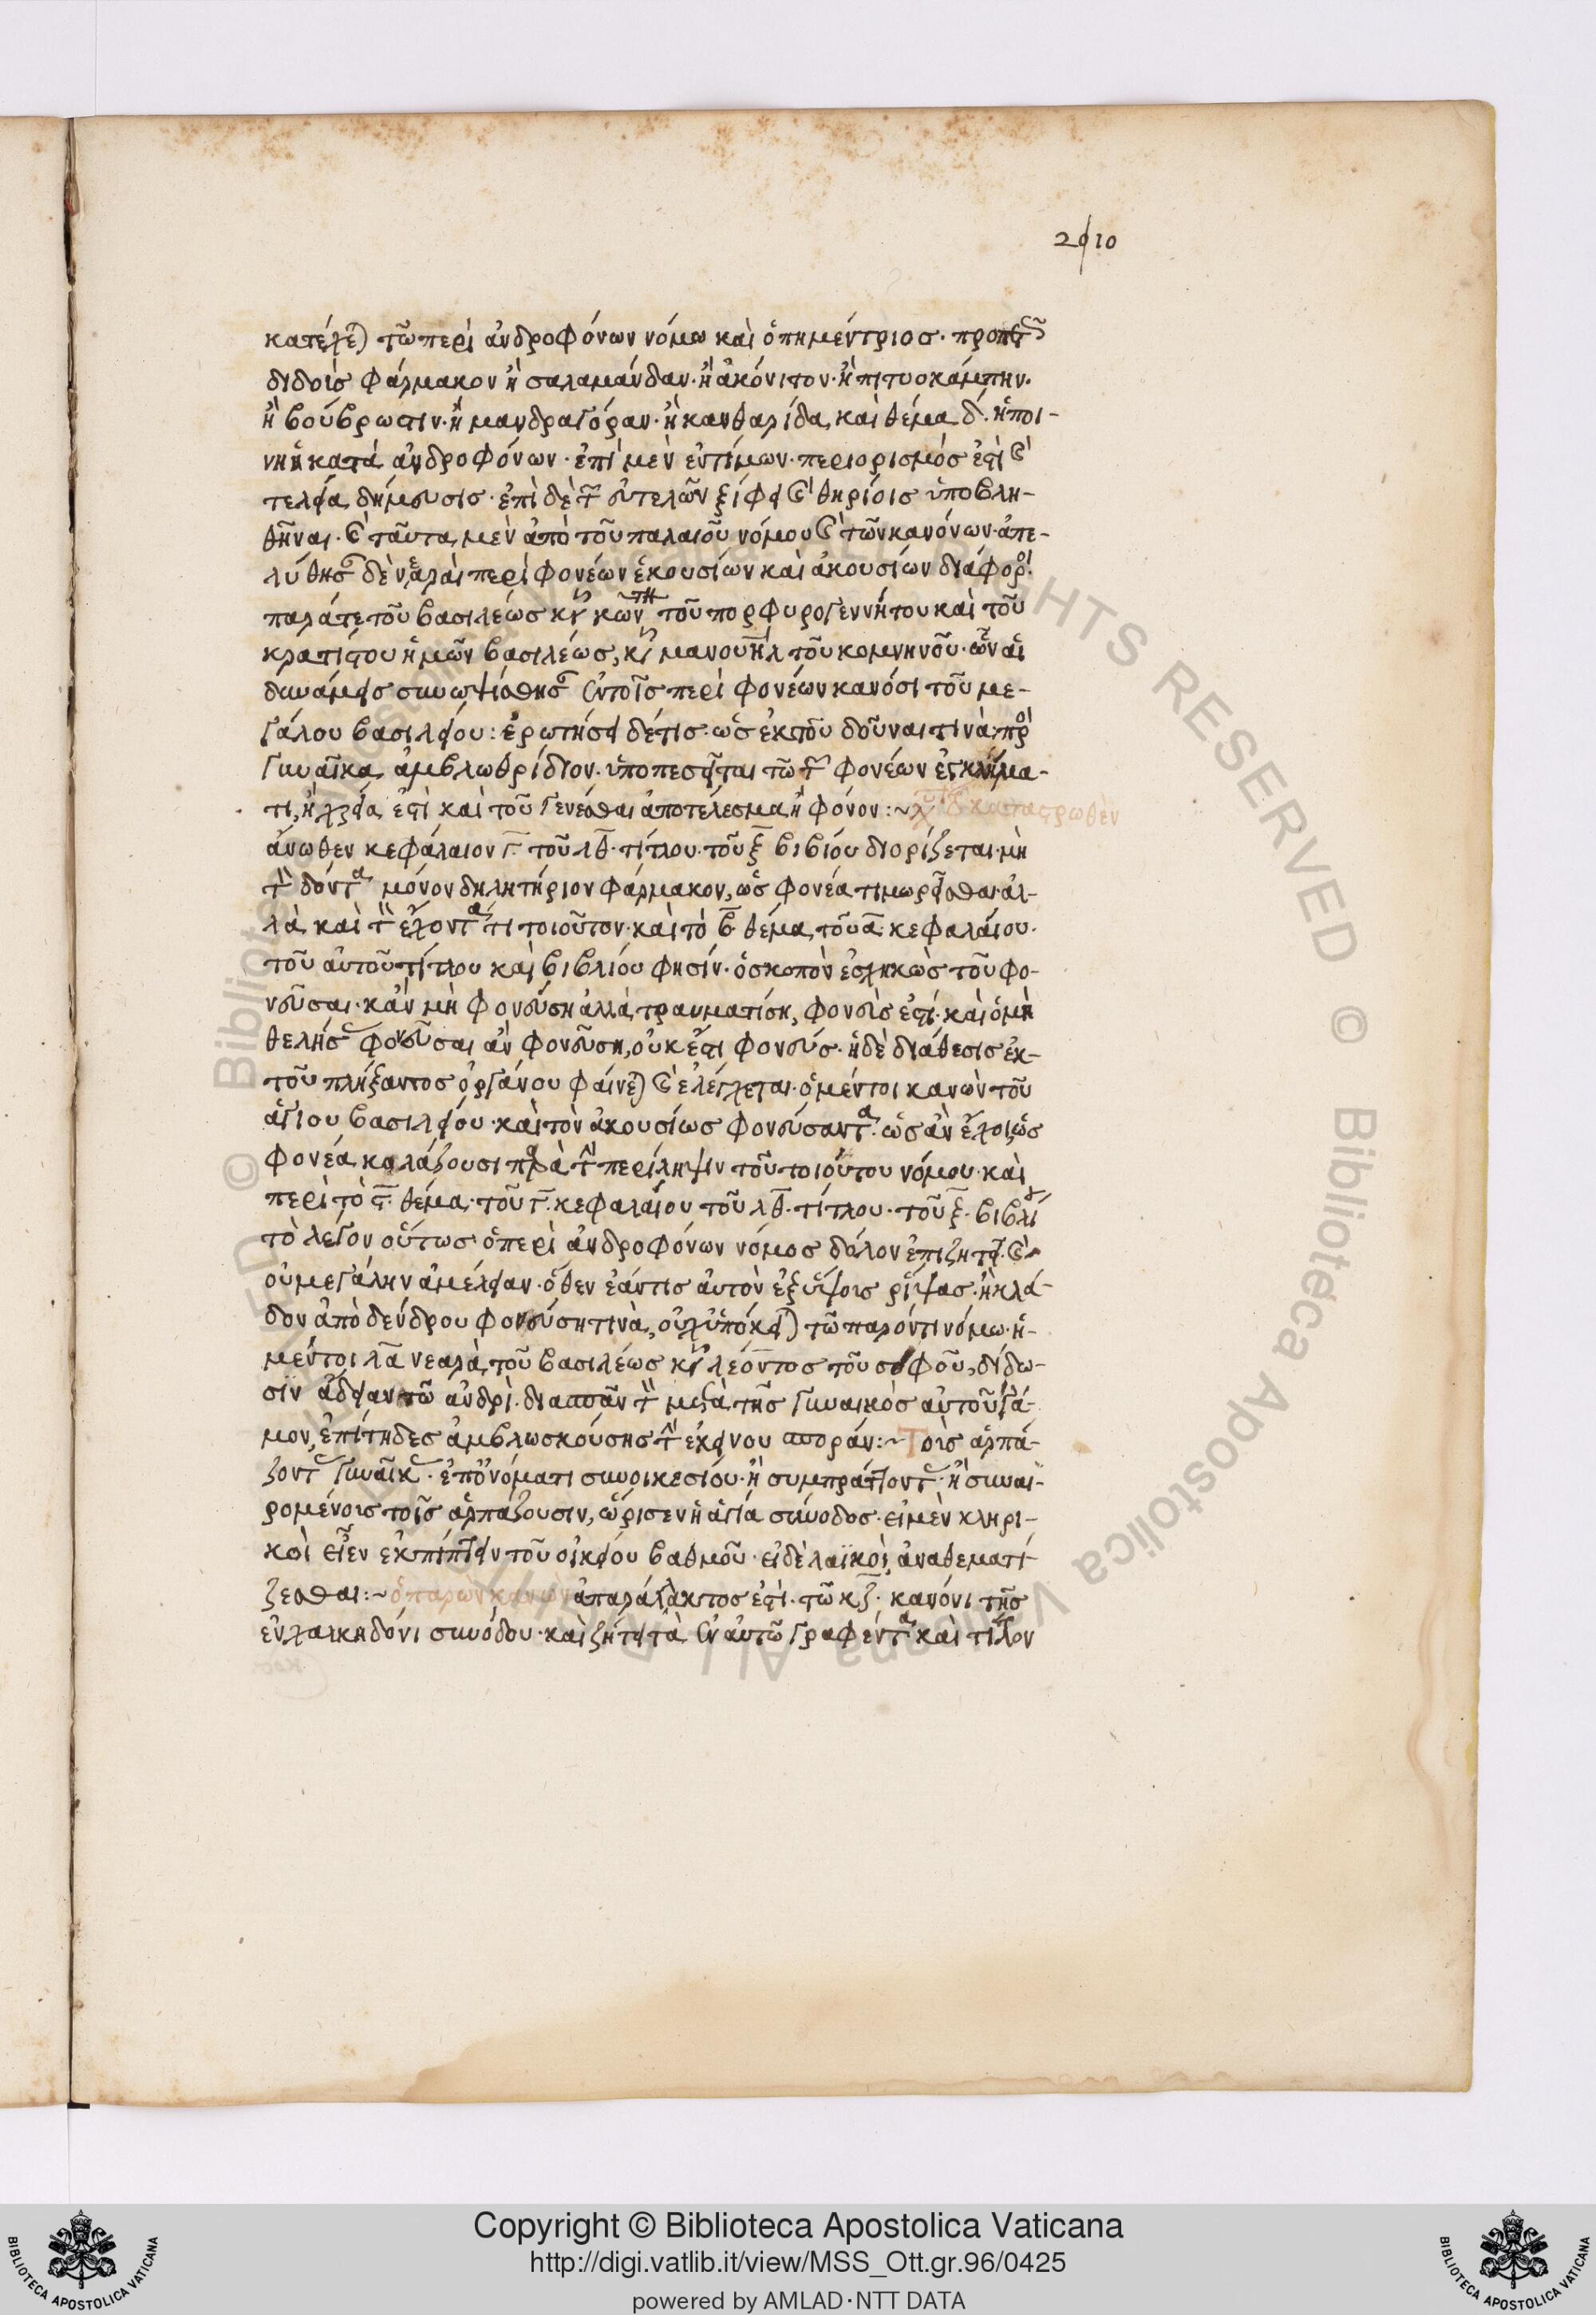 2010
κατέχε) τῶ περὶ ἀνδροφόνων νόμω καὶ ὁ πημέντριοσ·
διδοὺσ φάρμακον ἢ σαλαμάνδαν· ἢ ἀκόνιτον· ἢ πιτυοκάμπην·
ἢ βούβρωστιν· ἢ μανδραγόραν· ἢ κανθαρίδα, καὶ θέμα δ· ἡ ποι-
νὴ ἡ κατὰ ἀνδροφόνων· ἐπὶ μὲν ἐντίμων· περιορισμόσ ἐστι καὶ
τελεία δήμευσισ· ἐπὶ δὲ τῶν εὐτελῶν ξίφει καὶ θηρίοισ ὑποβλη-
θῆναι· καὶ ταῦτα μὲν ἀπὸ τοῦ παλαιοῦ νόμου καὶ τῶν κανόνων· ἀπε-
λύθησαν δὲ νεαραὶ περὶ φονέων ἑκουσίων καὶ ἀκουσίων διάφοροι·
παρά τε τοῦ βασιλέωσ κυ κων τοῦ πορφυρογεννήτου καὶ τοῦ
κρατίστου ἡμῶν βασιλέωσ, κυ μανουὴλ τοῦ κομνηνοῦ· ὧν αἱ
δυνάμεισ συνωψίσθησαν ἐν τοῖσ περὶ φονέων κανόσι τοῦ με-
γάλου βασιλείου: ἐρωτήσει δέ τισ· ὡσ ἐκ τοῦ δοῦναι τινὰ πρὸσ
γυναῖκα ἀμβλωθρίδιον· ὑποπεσεῖται τῶ τῶν φονέων ἐγκλήμα-
τι, ἢ χρεία ἐστὶ καὶ τοῦ γενέσθαι ἀποτέλεσμα ἢ φόνον:~ καταστρωθὲν
ἄνωθεν κεφάλαιον γ τοῦ λθ· τίτλου· τοῦ ξ βιβίου διορίζεται· μὴ
τὸν δόντα μόνον δηλητήριον φάρμακον, ὡσ φονέα τιμωρεῖσθαι· ἀλ-
λὰ καὶ τὸν ἔχοντα τι τοιοῦτον· καὶ τὸ β· θέμα τοῦ α· κεφαλαίου·
τοῦ αὐτοῦ τίτλου καὶ βιβλίου φησίν· ὁ σκοπὸν ἐσχηκὼσ τοῦ φο-
νεῦσαι· κἂν μὴ φονεύση ἀλλὰ τραυματίση, φονεὺσ ἐστί· καὶ ὁ μὴ
θελήσασ φονεῦσαι ἂν φονεύση, οὐκ ἔστι φονεύσ· ἡ δὲ διάθεσισ ἐκ-
τοῦ πλήξαντοσ ὀργάνου φαίνε) καὶ ἐλέγχεται· ὁ μέντοι κανὼν τοῦ
ἁγίου βασιλείου· καὶ τὸν ἀκουσίωσ φονεύσαντα· ὡσ ἂν ἔχοι, ὡσ
φονέα κολάζουσι παρὰ τὴν περίληψιν τοῦ τοιούτου νόμου· καὶ
περὶ τὸ ς· θέμα· τοῦ γ· κεφαλαίου τοῦ λθ· τίτλου· τοῦ ξ· βιβλίου
τὸ λέγον οὕτωσ ὁ περὶ ἀνδροφόνων νόμοσ δόλον ἐπιζητεῖ· καὶ
οὐ μεγάλην ἀμέλειαν· ὅθεν ἐάν τισ αὐτὸν ἐξ ὕψουσ ῥίψασ· ἢ κλά-
δον ἀπὸ δένδρου φονεύση τινὰ, οὐχ ὑπόκει) τῶ παρόντι νόμω· ἡ-
μέντοι λα νεαρὰ τοῦ βασιλέωσ κυ λέοντοσ τοῦ σοφοῦ, δίδω-
σϊν ἄδειαν τῶ ἀνδρὶ· διασπᾶν τὸν μετὰ τῆσ γυναικὸσ αὐτοῦ γά-
μον, ἐπίτηδεσ ἀμβλωσκούσησ τὴν ἐκείνου σποράν:~ Τοὺσ ἁρπά-
ζοντασ γυναῖκασ· ἐπ' ὀνόματι συνοικεσίου· ἢ συμπράττοντασ· ἢ συναι-
ρομένουσ τοῖσ ἁρπάζουσιν, ὥρισεν ἡ ἁγία σύνοδοσ· εἰ μὲν κληρι-
κοὶ εἶεν ἐκπίπτειν τοῦ οἰκείου βαθμοῦ· εἰ δὲ λαϊκοὶ, ἀναθεματί-
ζεσθαι:~ ὁ παρὼν κανὼν ἀπαράλλακτοσ ἐστὶ· τῶ κζ· κανόνι τῆσ
ἐν χαλκηδόνι συνόδου· καὶ ζήτει τὰ ἐν αὐτῶ γραφέντα καὶ τίτλον
Copyright © Biblioteca Apostolica Vaticana
http://digi.vatlib.it/view/MSS_Ott.gr.96/0425
powered by AMLAD·NTT DATA